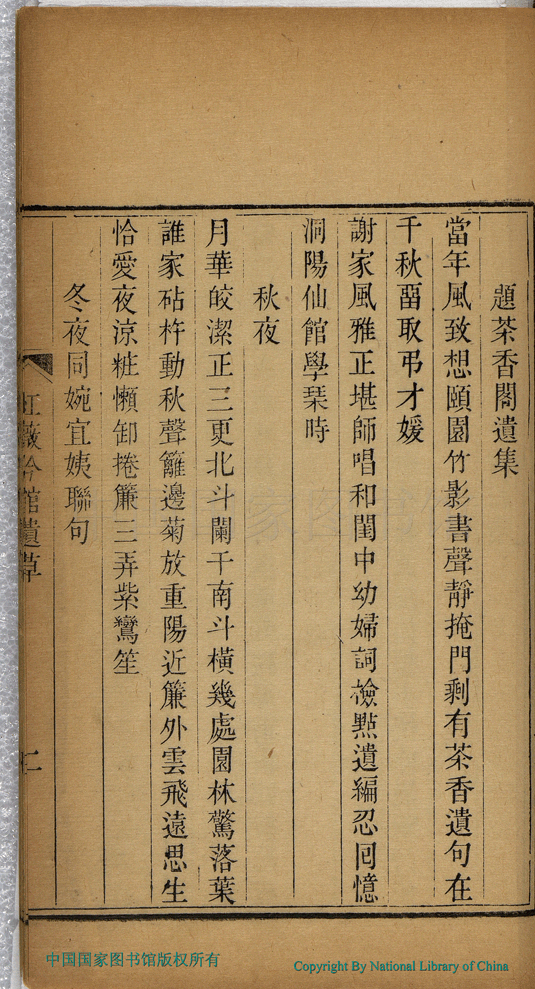 題茶香閣遺集
當年風致想頤園竹影書聲靜掩門剩有茶香遺句在
千秋畱取弔才媛
謝家風雅正堪師唱和閨中幼婦詞檢㸃遺編忍囘憶
洞陽仙館學琹時
秋夜
月華皎潔正三更北斗闌干南斗橫幾處園林驚落葉
誰家砧杵動秋聲籬邊菊放重陽近簾外雲飛遠思生
恰愛夜涼粧懶卸捲簾三弄紫鸞笙
冬夜同婉宜姨聯句
紅薇吟館遺草
二
中国国家图书馆版权所有
Copyright By National Library of China